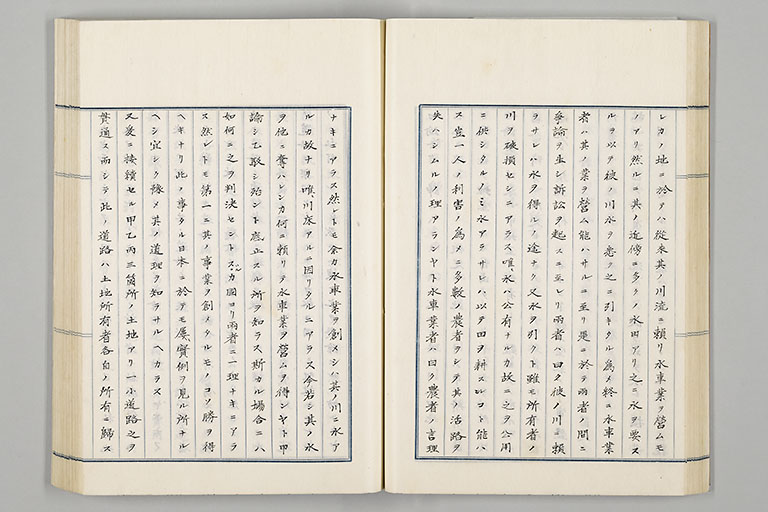 レカノ地ニ於テハ從來其ノ川流ニ頼リ水車業ヲ營ムモ
ノアリ然ルニ其ノ近傍ニ多クノ水田アリ之ニ水ヲ要ス
ルヲ以テ彼ノ川水ヲ悉ク之ニ引キタル為メ終ニ水車業
者ハ其ノ業ヲ營ム能ハサルニ至リ是ニ於テ兩者ノ間ニ
爭論ヲ生シ訴訟ヲ起スニ至レリ兩者ハ曰ク彼ノ川ニ頼
ラサレハ水ヲ得ルノ途ナク又水ヲ引クト雖モ所有者ノ
川ヲ破損セシニアラス唯水ハ公有ナルカ故ニ之ヲ公用
ニ供シタルノミ水アラサレハ以テ田ヲ耕スルコト能ハ
ス豈一人ノ利害ノ為メニ多數ノ農者ヲシテ其ノ活路ヲ
失ハシムルノ理アランヤト水車業者ハ曰ク農者ノ言理
ナキニアラス然レトモ余カ水車業ヲ創メシハ其ノ川ニ水ア
ルカ故ナリ唯川床アルニ因リタルニアラス今若シ其ノ水
ヲ他ニ奪ハレンカ何ニ頼リテ水車業ヲ營ムヲ得ンヤト甲
論シ乙駁シ殆ント底止スル所ヲ知ラス斯カル場合ニハ
如何ニ之ヲ判決セントスルカ固ヨリ兩者ニ一理ナキニアラ
ス然レトモ第一ニ其ノ事業ヲ創メタルモノコソ勝ヲ得
ヘキナリ此ノ事タル日本ニ於テモ屢實例ヲ見ル所ナル
ヘシ宜シク豫メ其ノ道理ヲ知ラサルヘカラス
又爰ニ接續セル甲乙丙三箇所ノ土地アリ一小道路之ヲ
貫通ス而シテ此ノ道路ハ土地所有者各自ノ所有ニ歸ス